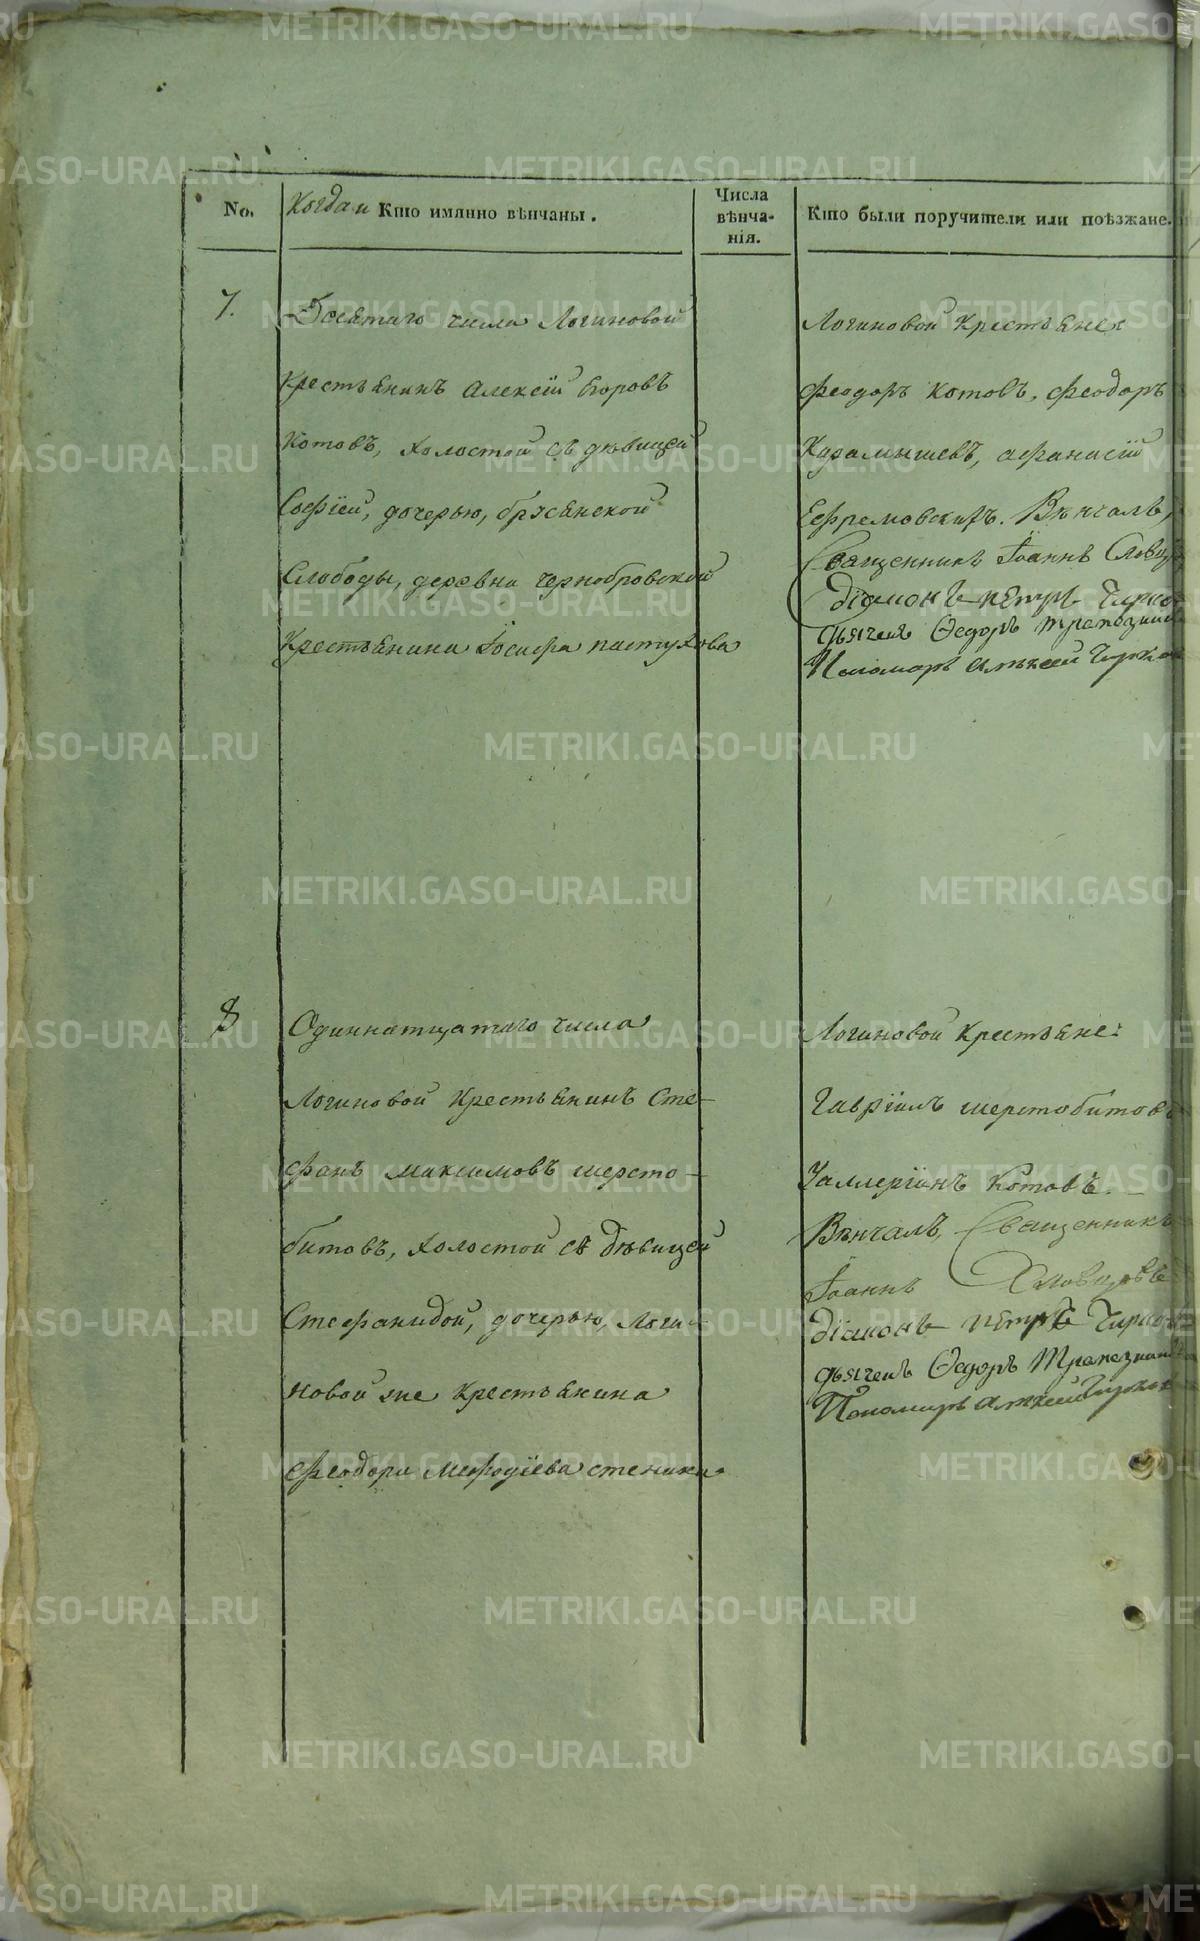 No.
Когда и Кто имянно вѣнчаны.
Числа
вѣнча-
нія.
Кто были поручители или поѣзжане.
7.
Десятаго числа Логиновой
Крестьянинъ Алексѣй Егоровъ
Котовъ, холостой съ дѣвицей
Софіей, дочерью, брусянской
Слободы, деревни чернобровской
Крестьянина Іосифа пастухова
Логиновой Крестьяне:
Феодоръ Котовъ, Феодоръ
Карамышевъ, Афанасій
Ефремовскихъ. Вѣнчалъ,
Священникъ Іоаннъ
Діаконъ Петръ
дьячекъ Федоръ
Пономарь Алексей
8
Одиннатцатаго числа
Логиновой Крестьянинъ Сте-
фанъ максимовъ шерсто-
битовъ, холостой съ дѣвицей
Стефанидой, дочерью, Логи-
новой же Крестьянина
Феодора Мефодіева
Логиновой Крестьяне:
Гавріилъ шерстобитовъ
Уаллеріанъ Котовъ.
Вѣнчалъ, Священникъ
Іоаннъ Словцовъ
Діаконъ Петръ
дьячекъ Федоръ
Пономарь Алексей
METRIKI.GASO-URAL.RU